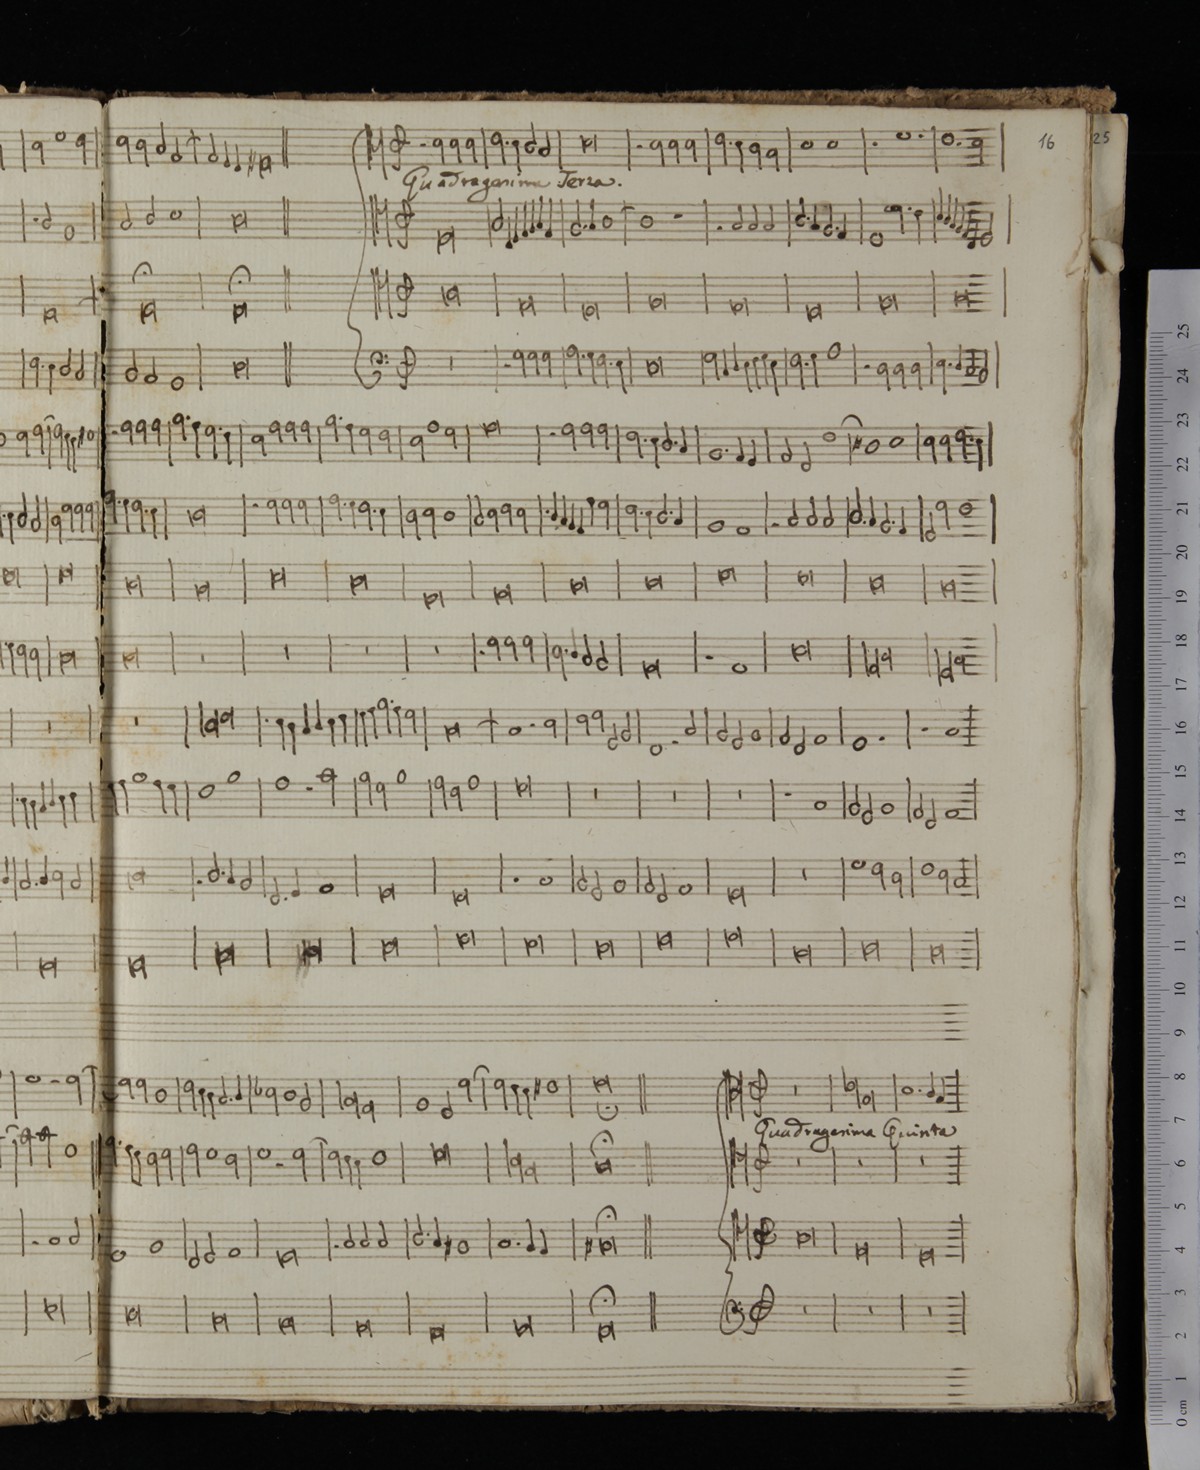 16
25
Quadragesima Terza.
Quadragesima Quinta
25
24
23
22
21
20
19
18
17
16
15
14
13
12
11
10
9
8
7
6
5
4
3
2
1
0 cm